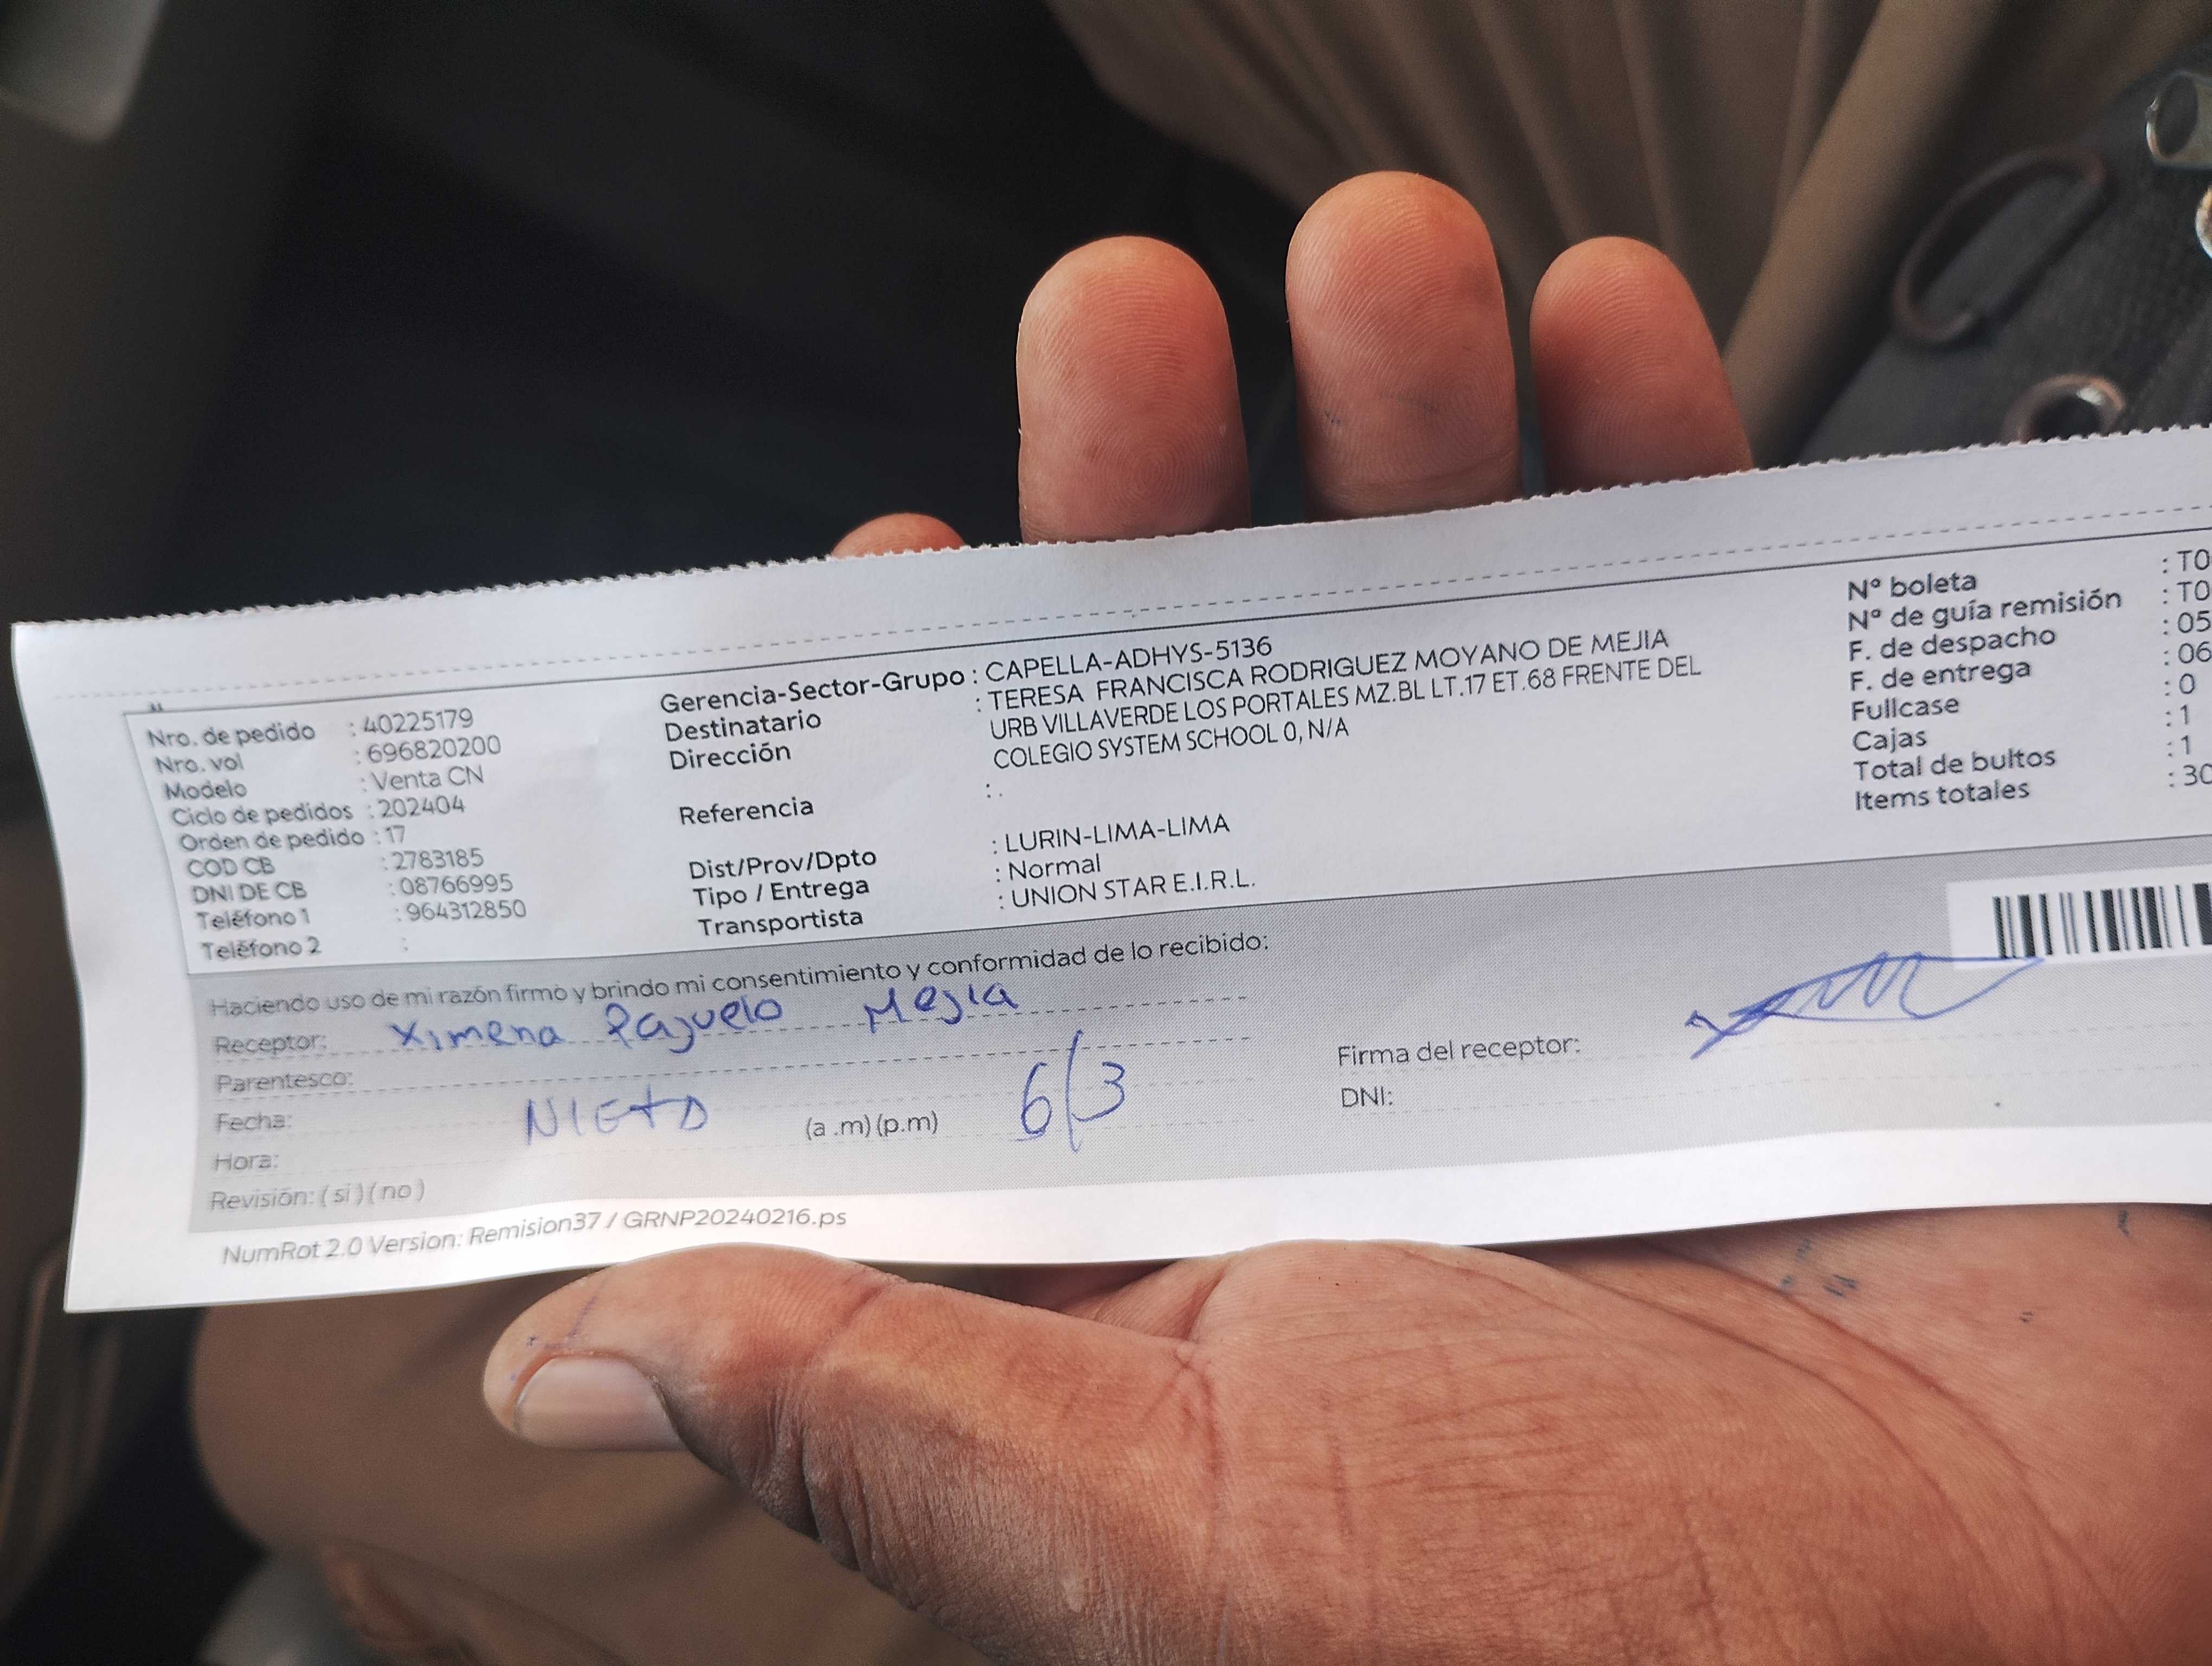 Nro. de pedido : 40225179
Nro. vol : 696820200
Modelo : Venta CN
Ciclo de pedidos : 202404
Orden de pedido : 17
COD CB : 2783185
DNI DE CB : 08766995
Teléfono 1 : 964312850
Teléfono 2 :
Gerencia-Sector-Grupo : CAPELLA-ADHYS-5136
Destinatario : TERESA FRANCISCA RODRIGUEZ MOYANO DE MEJIA
Dirección URB VILLAVERDE LOS PORTALES MZ.BL LT.17 ET.68 FRENTE DEL
COLEGIO SYSTEM SCHOOL 0, N/A
Referencia : .
Dist/Prov/Dpto : LURIN-LIMA-LIMA
Tipo / Entrega : Normal
Transportista : UNION STAR E.I.R.L.
Nº boleta : T0
Nº de guía remisión : T0
F. de despacho : 05
F. de entrega : 06
Fullcase : 0
Cajas : 1
Total de bultos : 1
Items totales : 30
Haciendo uso de mi razón firmo y brindo mi consentimiento y conformidad de lo recibido:
Receptor: Ximena Pajuelo Mejia
Parentesco:
Fecha: NIETO (a .m) (p.m) 6/3
Hora:
Revisión: ( si ) ( no )
Firma del receptor:
DNI:
NumRot 2.0 Version: Remision37 / GRNP20240216.ps